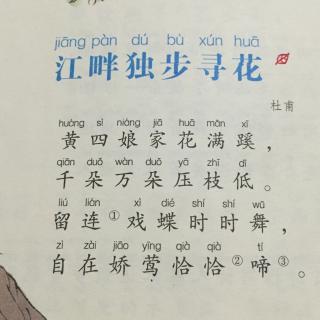 jiāng pàn dú bù xún huā
江畔独步寻花
杜甫
huáng sì niáng jiā huā mǎn xī
黄四娘家花满蹊，
qiān duǒ wàn duǒ yā zhī dī
千朵万朵压枝低。
liú lián xì dié shí shí wǔ
留连①戏蝶时时舞，
zì zài jiāo yīng qià qià tí
自在娇莺恰恰②啼③。